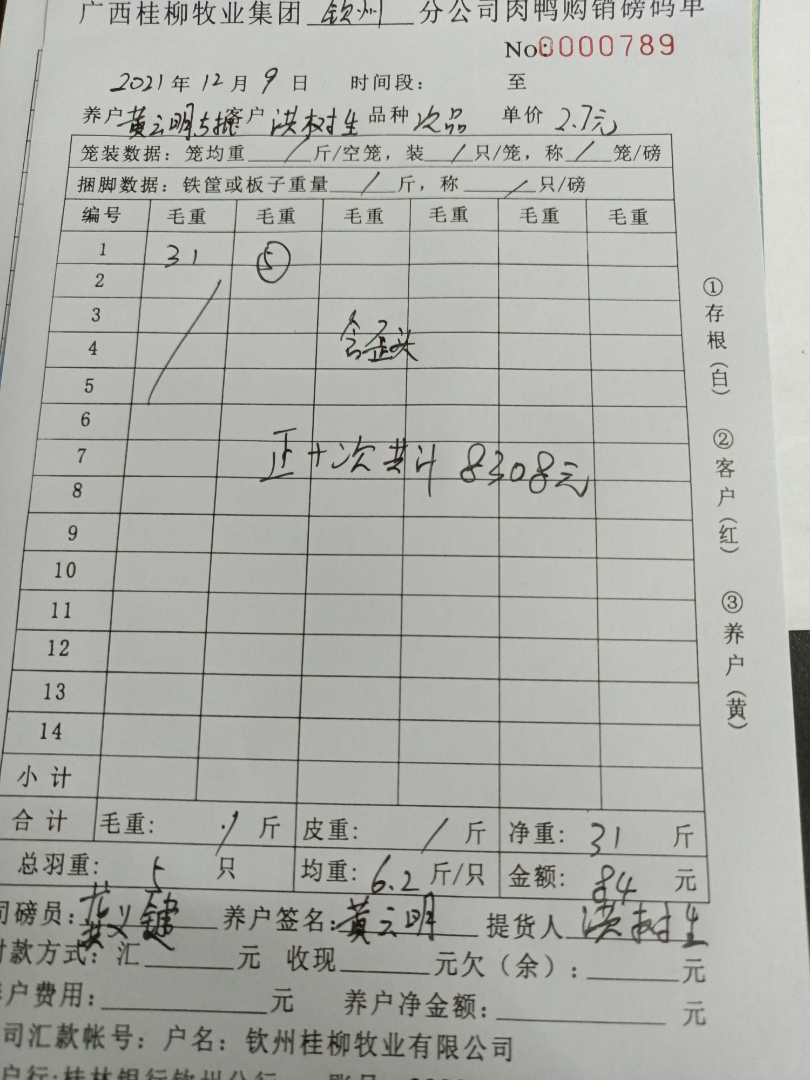 广西桂柳牧业集团 钦州 分公司肉鸭购销磅码单
No:0000789
2021年12月9日 时间段: 至
养户黄云明 客户 洪树生 品种 次品 单价 2.7元
笼装数据:笼均重 / 斤/空笼,装 / 只/笼,称 / 笼/磅
捆脚数据:铁筐或板子重量 / 斤,称 / 只/磅
编号 毛重 毛重 毛重 毛重 毛重 毛重
1 31 ⑤
2
3
4 含歪头
5
6
7 正+次共计 8308元
8
9
10
11
12
13
14
小计
合计 毛重: / 斤 皮重: / 斤 净重: 31 斤
总羽重: 5 只 均重: 6.2 斤/只 金额: 84 元
司磅员: 养户签名:黄云明 提货人 洪树生
付款方式:汇 元 收现 元欠(余): 元
养户费用: 元 养户净金额: 元
司汇款帐号:户名:钦州桂柳牧业有限公司
户行:桂林银行钦州分行
①存根(白) ②客户(红) ③养户(黄)